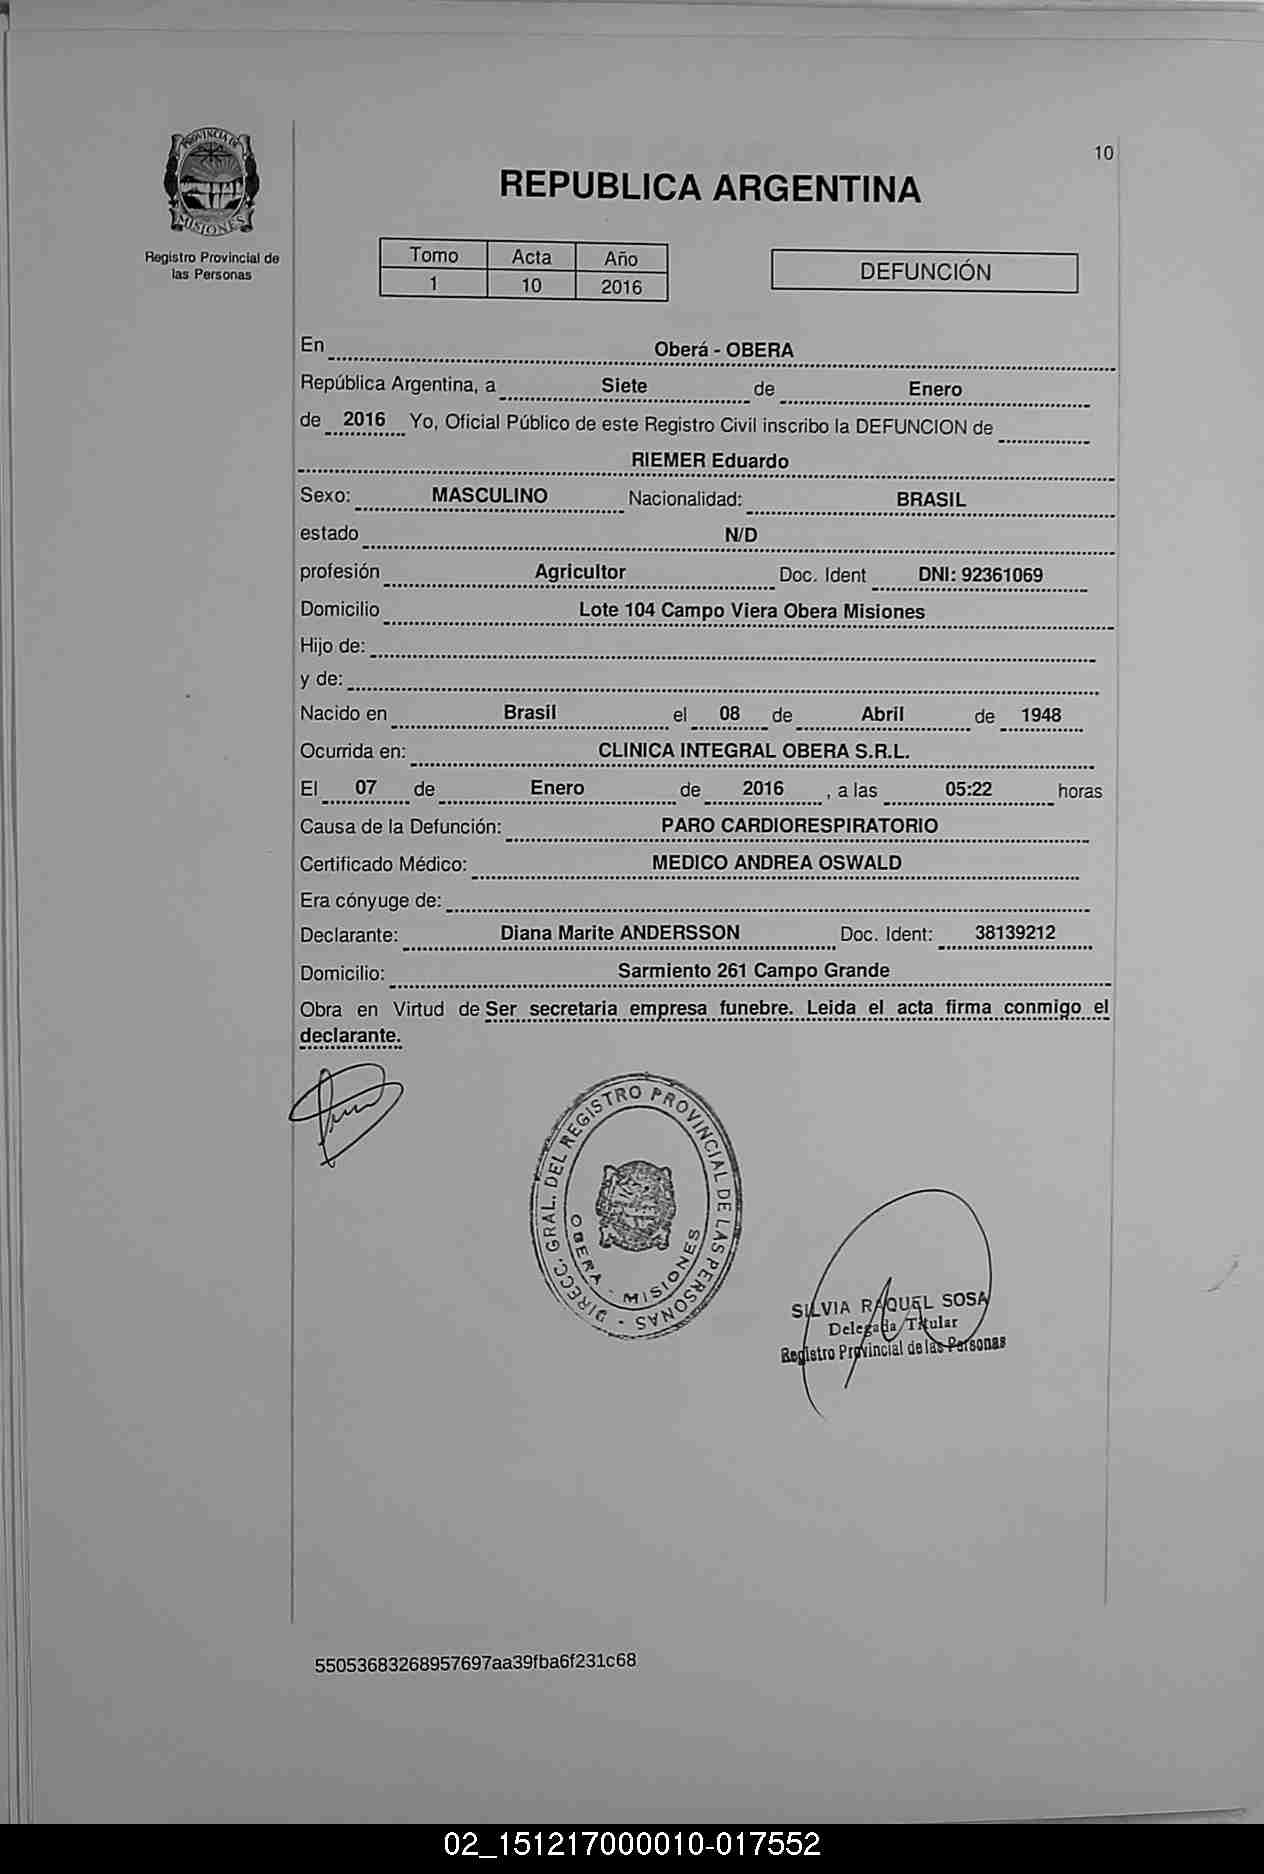 10
PROVINCIA DE
MISIONES
Registro Provincial de
las Personas
REPUBLICA ARGENTINA
Tomo Acta Año
1 10 2016
DEFUNCIÓN
En Oberá - OBERA
República Argentina, a Siete de Enero
de 2016 Yo, Oficial Público de este Registro Civil inscribo la DEFUNCION de
RIEMER Eduardo
Sexo: MASCULINO Nacionalidad: BRASIL
estado N/D
profesión Agricultor Doc. Ident DNI: 92361069
Domicilio Lote 104 Campo Viera Obera Misiones
Hijo de:
y de:
Nacido en Brasil el 08 de Abril de 1948
Ocurrida en: CLINICA INTEGRAL OBERA S.R.L.
El 07 de Enero de 2016 , a las 05:22 horas
Causa de la Defunción: PARO CARDIORESPIRATORIO
Certificado Médico: MEDICO ANDREA OSWALD
Era cónyuge de:
Declarante: Diana Marite ANDERSSON Doc. Ident: 38139212
Domicilio: Sarmiento 261 Campo Grande
Obra en Virtud de Ser secretaria empresa funebre. Leida el acta firma conmigo el
declarante.
DIRECC. GRAL. DEL REGISTRO PROVINCIAL DE LAS PERSONAS -
OBERA - MISIONES
SILVIA RAQUEL SOSA
Delegada Titular
Registro Provincial de las Personas
55053683268957697aa39fba6f231c68
02_151217000010-017552